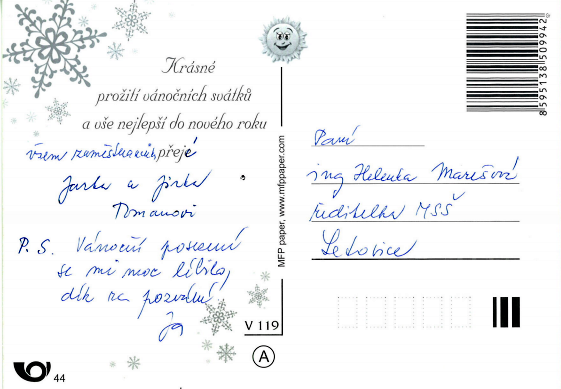 Krásné
prožití vánočních svátků
a vše nejlepší do nového roku
všem zaměstnancům přejí
Jarka a Jirka
Tomanovi
P. S. Vánoční posezení
se mi moc líbilo,
dík za pozvání
Já
44
MFP paper, www.mfppaper.com
V 119
A
8595138509942
Paní
ing Helenka Marešová
ředitelka MSŠ
Letovice